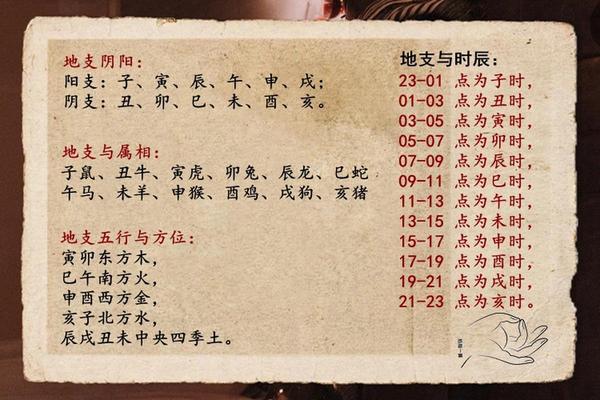 地支阴阳：
阳支：子、寅、辰、午、申、戌；
阴支：丑、卯、巳、未、酉、亥。
地支与属相：
子鼠、丑牛、寅虎、卯兔、辰龙、巳蛇
午马、未羊、申猴、酉鸡、戌狗、亥猪
地支五行与方位：
寅卯东方木，
巳午南方火，
申酉西方金，
亥子北方水，
辰戌丑未中央四季土。
地支与时辰：
23-01 点为子时，
01-03 点为丑时，
03-05 点为寅时，
05-07 点为卯时，
07-09 点为辰时，
09-11 点为巳时，
11-13 点为午时，
13-15 点为未时，
15-17 点为申时，
17-19 点为酉时，
19-21 点为戌时，
21-23 点为亥时。